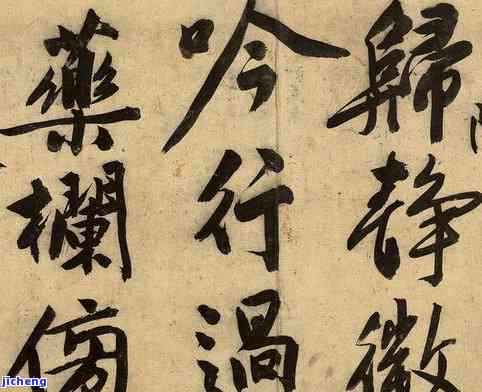 歸靜微
吟行過
藥欄傍
jicheng